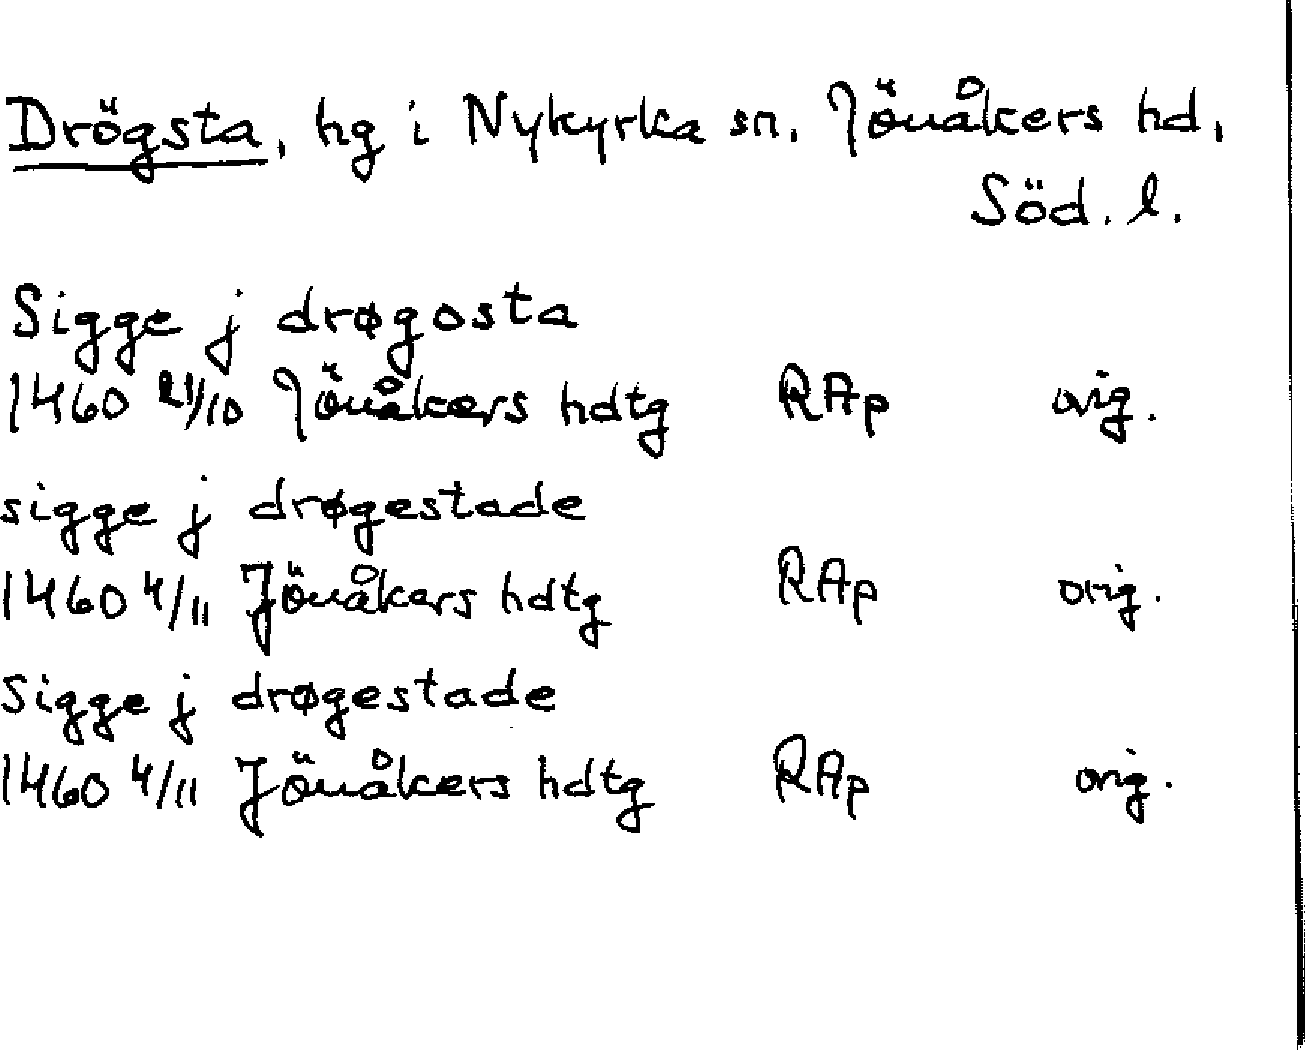 Drögsta, hg i Nykyrka sn. Jönåkers hd,
Söd. l.
Sigge j drøgosta
1460 21/10 Jönåkers hdtg RAp orig.
sigge j drøgestade
1460 4/11 Jönåkers hdtg RAp orig.
Sigge j drøgestade
1460 4/11 Jönåkers hdtg RAp orig.